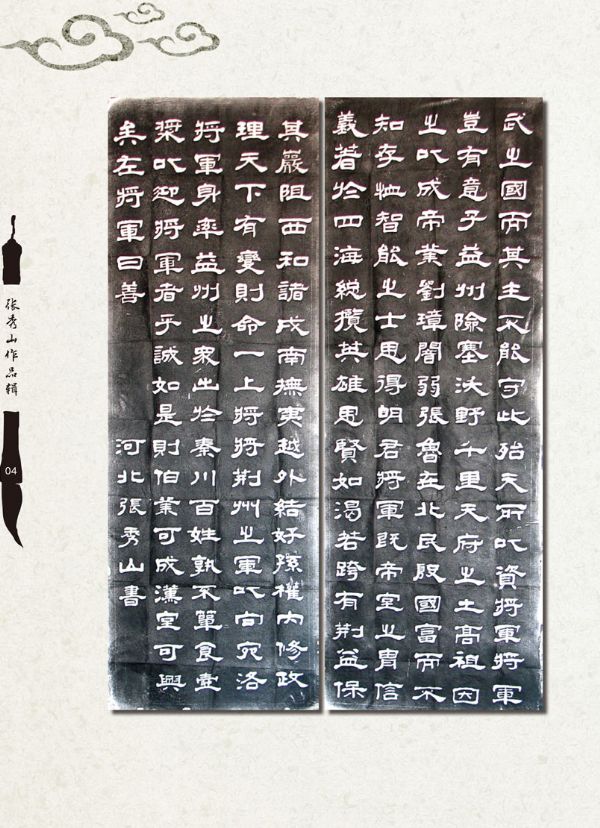 武之國而其主不能守此殆天所以資將軍將軍
豈有意乎益州險塞沃野千里天府之土高祖因
之以成帝業劉璋闇弱張魯在北民殷國富而不
知存恤智能之士思得明君將軍既帝室之胄信
義著於四海總攬英雄思賢如渴若跨有荊益保
其巖阻西和諸戎南撫夷越外結好孫權內修政
理天下有變則命一上將將荊州之軍以向宛洛
將軍身率益州之眾出於秦川百姓孰不簞食壺
漿以迎將軍者乎誠如是則伯業可成漢室可興
矣左將軍曰善 河北張秀山書
张秀山作品辑
04